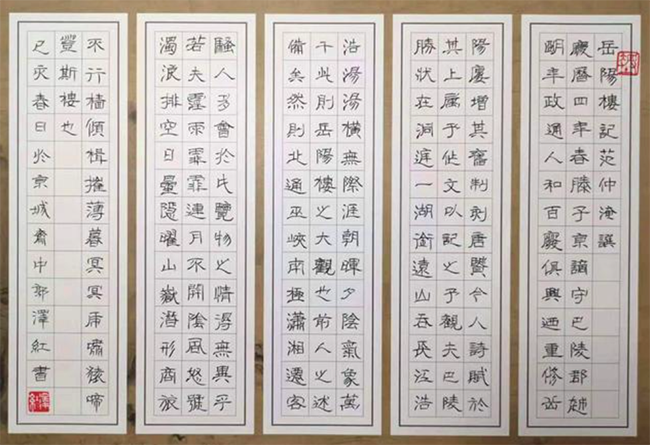 岳陽樓記范仲淹譔
慶曆四年春滕子京謫守巴陵郡越
明年政通人和百廢俱興迺重修岳
陽廔增其舊制刻唐賢今人詩賦於
其上屬予作文以記之予觀夫巴陵
勝狀在洞庭一湖銜遠山吞長江浩
浩湯湯橫無際涯朝暉夕陰氣象萬
千此則岳陽樓之大觀也前人之述
備矣然則北通巫峽南極瀟湘遷客
騷人多會於此覽物之情得無異乎
若夫霪雨霏霏連月不開陰風怒號
濁浪排空日星隱曜山嶽潛形商旅
不行檣傾楫摧薄暮冥冥虎嘯猿啼
登斯樓也
己亥春日於京城齋中郭澤紅書